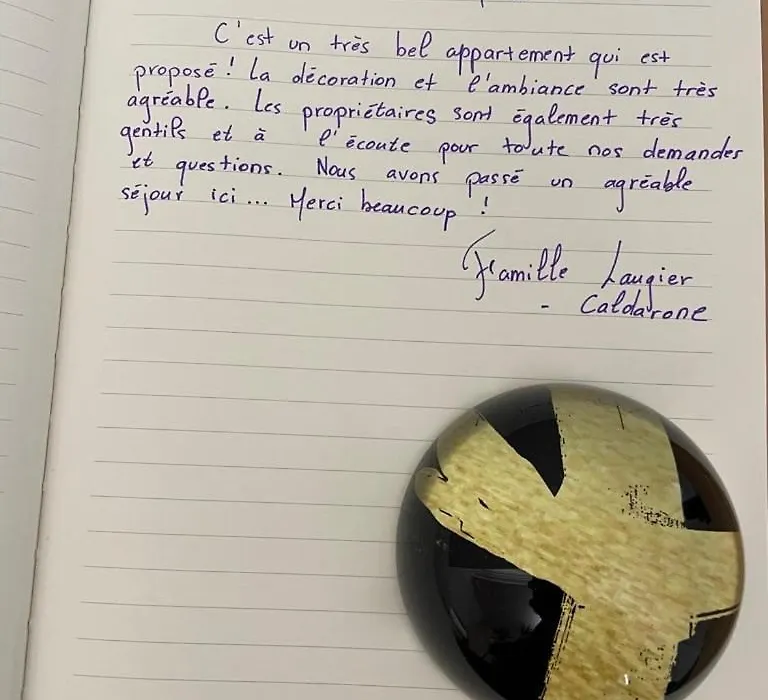 C'est un très bel appartement qui est
proposé ! La décoration et l'ambiance sont très
agréable. Les propriétaires sont également très
gentils et à l'écoute pour toute nos demandes
et questions. Nous avons passé un agréable
séjour ici... Merci beaucoup !
Famille Laugier
- Caldarone